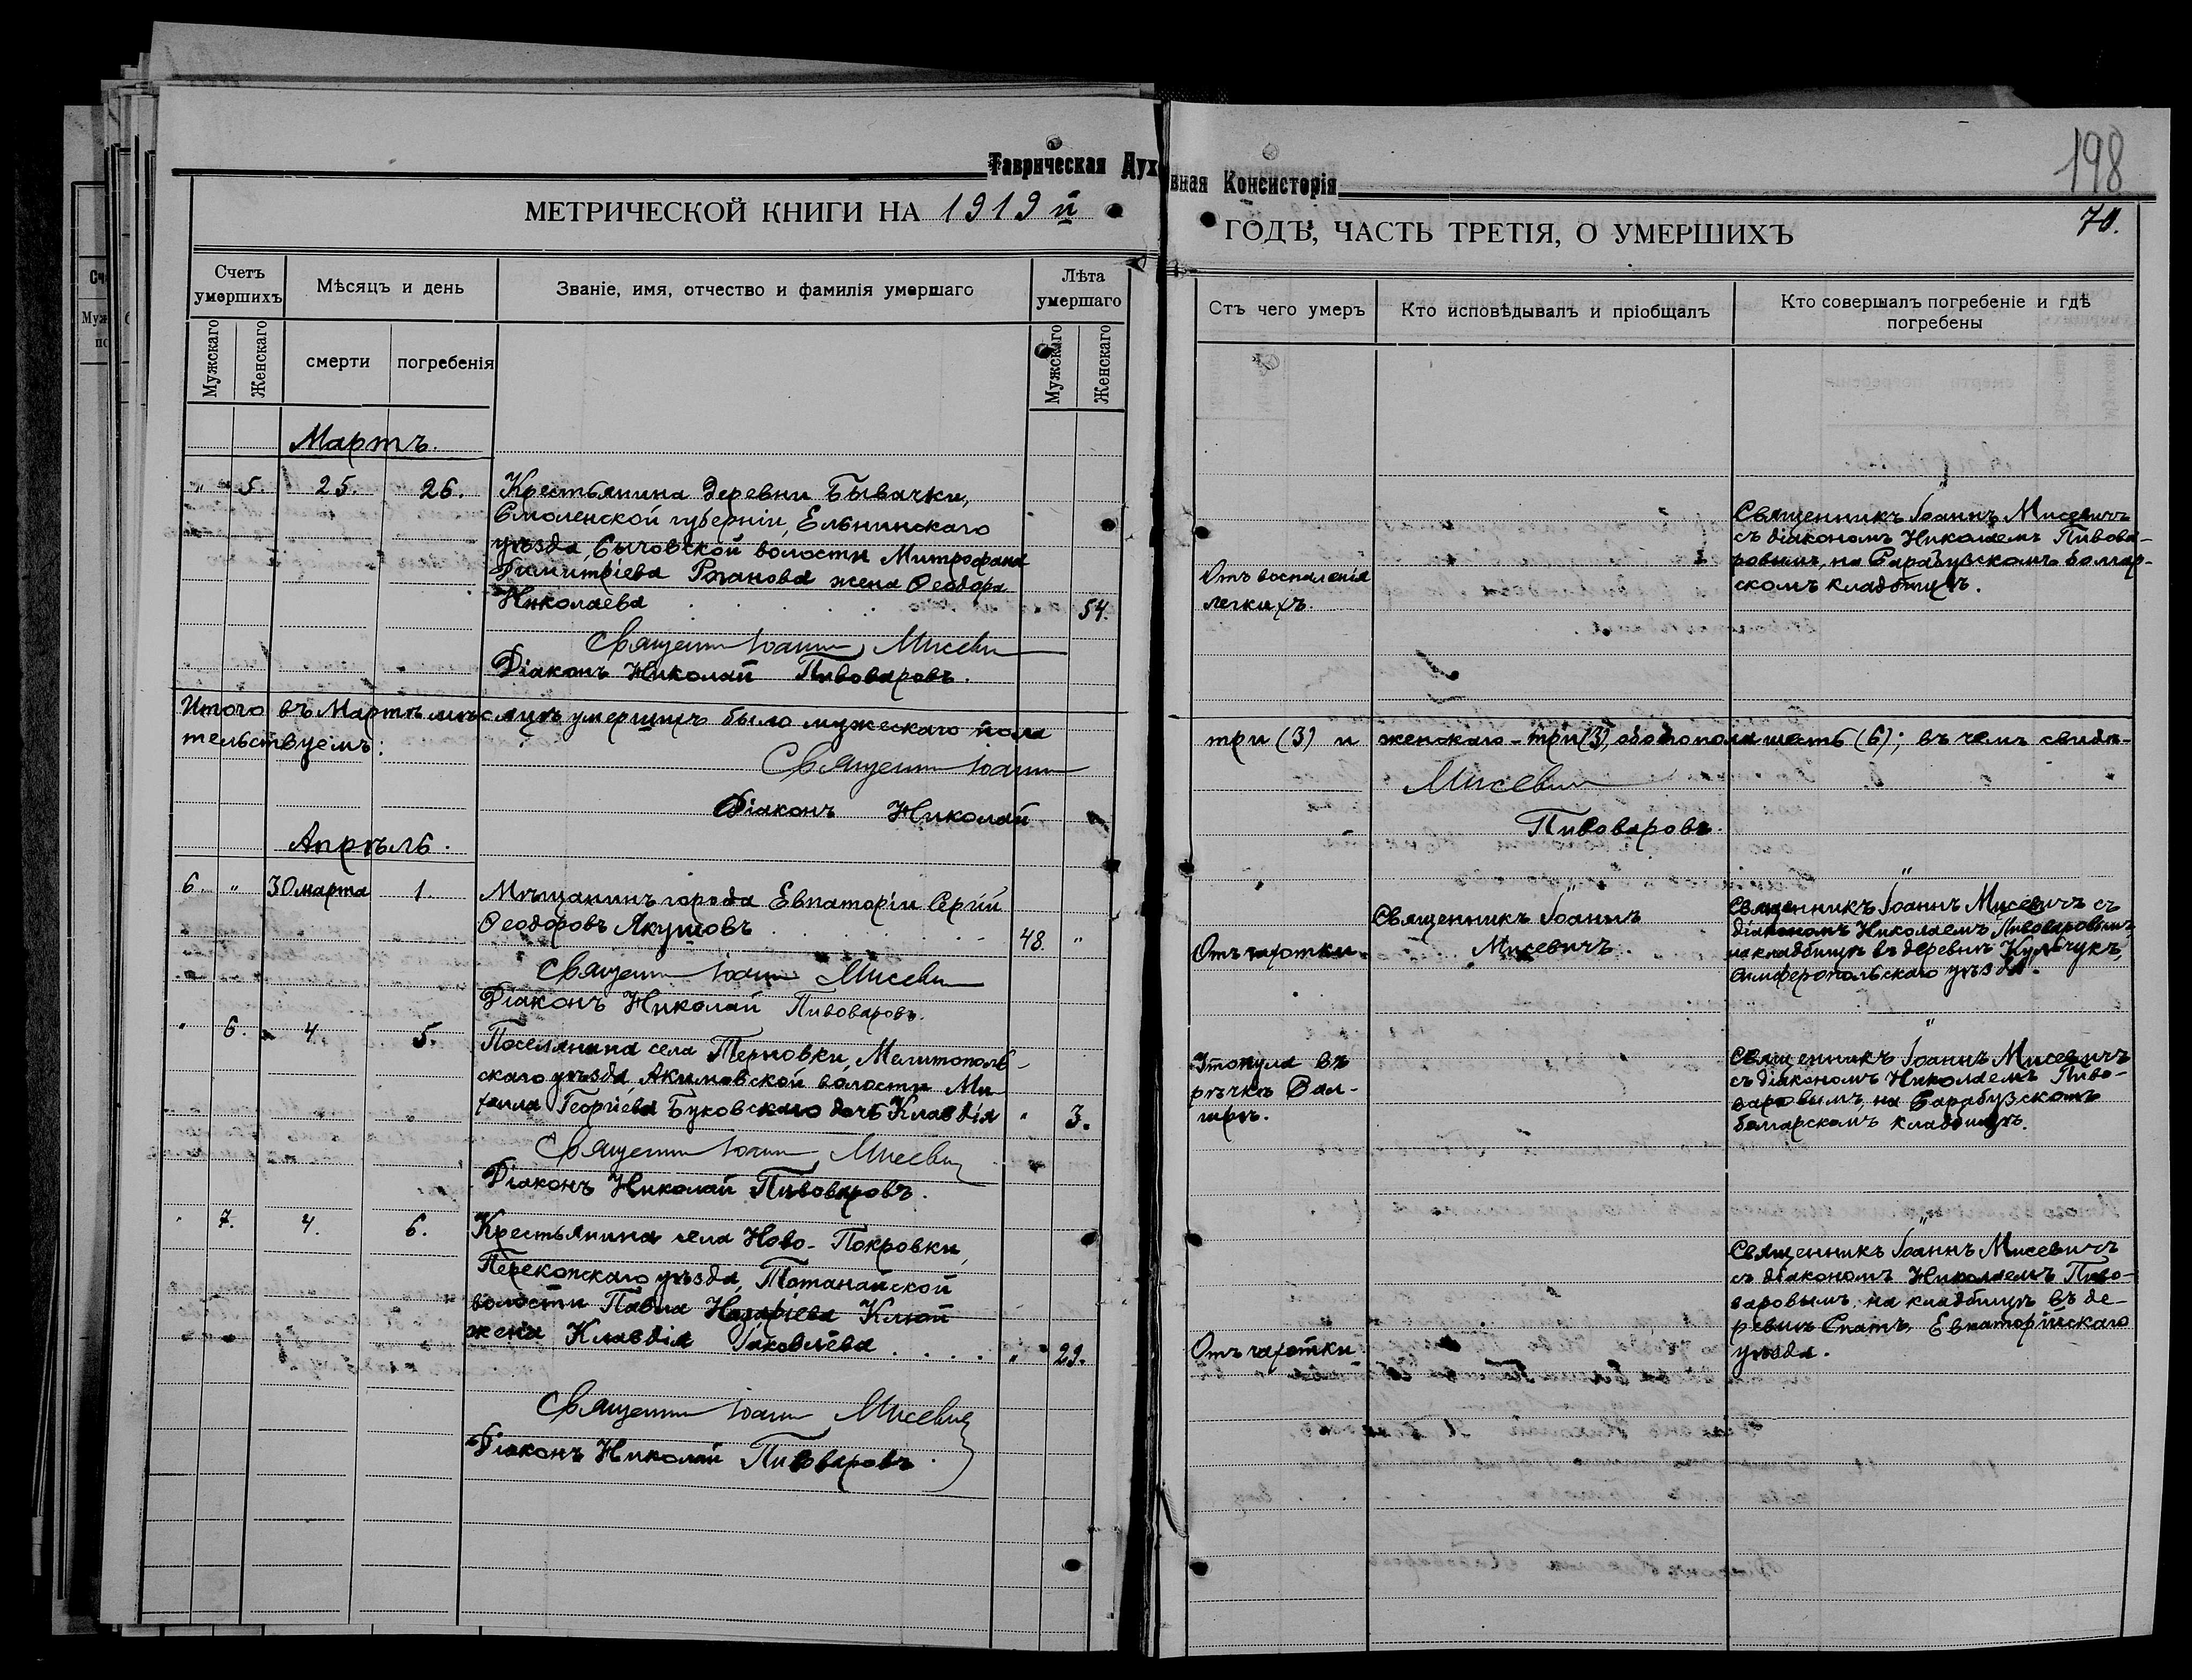 Таврическая Дух
МЕТРИЧЕСКОЙ КНИГИ НА 1919 й
Счетъ умершихъ
Мѣсяцъ и день
Званіе, имя, отчество и фамилія умершаго
Лѣта умершаго
Мужскаго
Женскаго
смерти
погребенія
Мужскаго
Женскаго
Мартъ.
" 5. 25. 26. Крестьянина деревни Бывачки,
Смоленской губерніи, Ельнинскаго
уѣзда, Сычовской волости Митрофана
Димитріева Роганова жена Ѳеодора
Николаева 54.
Священник Іоанн Мисевич
Діаконъ Николай Пивоваровъ.
Итого въ Мартѣ мѣсяцѣ умершихъ было мужескаго пола
тельствуемъ:
Священник Іоанн
Діаконъ Николай
Апрѣль.
6. " 30 марта 1. Мѣщанинъ города Евпаторіи Сергій
Ѳеодоровъ Якушовъ 48 "
Священник Іоанн Мисевич
Діаконъ Николай Пивоваровъ.
" 6. 4 5. Поселянина села Терновки, Мелитополь-
скаго уѣзда Акимовской волости Ми-
хаила Георгіева Буковскаго дочь Клавдія " 3.
Священник Іоанн Мисевич
Діаконъ Николай Пивоваровъ.
" 7. 4. 6. Крестьянина села Ново-Покровки,
Перекопскаго уѣзда, Тотанайской
волости Павла Назаріева Клюй
жена Клавдія Іаковлева " 29.
Священник Іоанн Мисевич
Діаконъ Николай Пивоваровъ.
вная Консисторія
198
ГОДЪ, ЧАСТЬ ТРЕТІЯ, О УМЕРШИХЪ
70.
Стъ чего умеръ
Кто исповѣдывалъ и пріобщалъ
Кто совершалъ погребеніе и гдѣ
погребены
Отъ воспаленія
легкихъ.
Священникъ Іоаннъ Мисевичъ
съ діакономъ Николаемъ Пивова-
ровымъ, на Сарабузскомъ болгар-
скомъ кладбищѣ.
три (3) и женскаго - три (3), обоего пола шесть (6); въ чемъ свидѣ-
Мисевич
Пивоваровъ.
Отъ чахотки.
Священникъ Іоаннъ
Мисевичъ.
"
Священникъ Іоаннъ Мисевичъ съ
діакономъ Николаемъ Пивоваровымъ,
на кладбищѣ въ деревнѣ Кульчукъ,
Симферопольскаго уѣзда.
Утонула въ
рѣчкѣ Сал-
гирѣ.
"
Священникъ Іоаннъ Мисевичъ
съ діакономъ Николаемъ Пиво-
варовымъ, на Сарабузскомъ
болгарскомъ кладбищѣ.
Отъ чахотки
"
Священникъ Іоаннъ Мисевичъ
съ діакономъ Николаемъ Пиво-
варовымъ, на кладбищѣ въ де-
ревнѣ Спатъ, Евпаторійскаго
уѣзда.